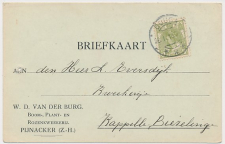 BRIEFKAART
AAN den Heer A. Eversdijk
Kweekerij
W. D. VAN DER BURG.
BOOM-, PLANT- EN
ROZENKWEEKERIJ.
PIJNACKER (Z.-H.)
Kappelle, Biezelinge